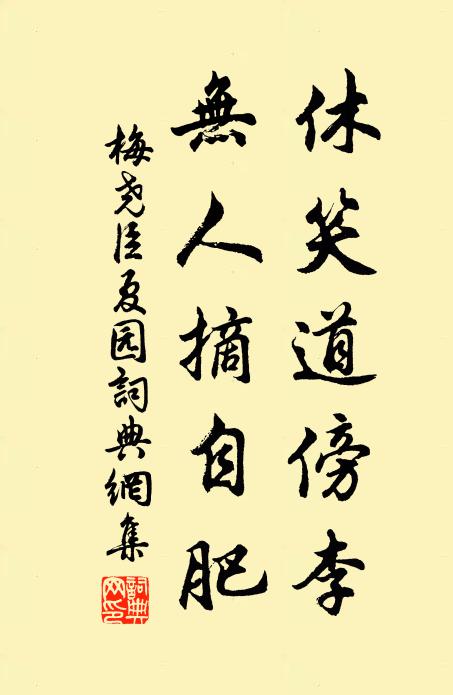 休笑道傍李
無人摘自肥
梅尧臣夏园詞典網集
詞典